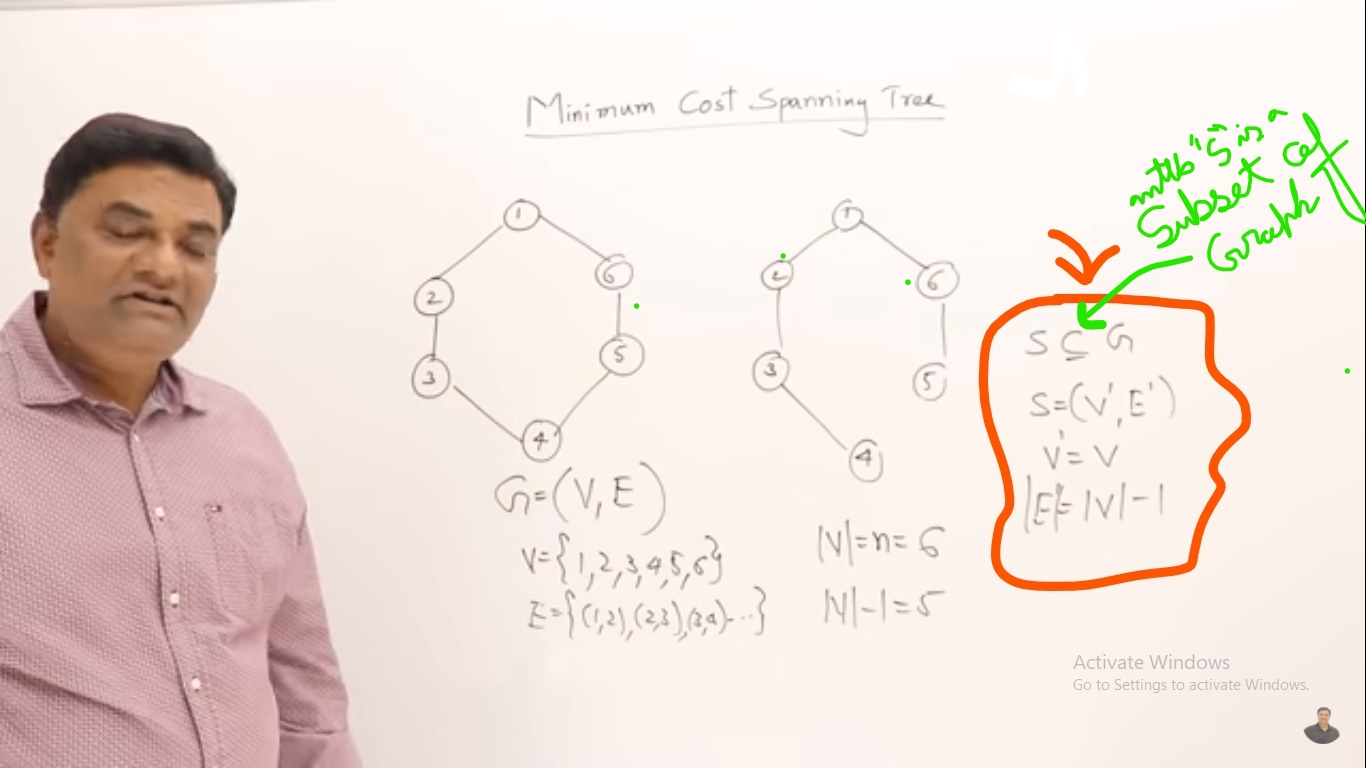 Minimum Cost Spanning Tree
1
2
3
4
5
6
1
2
3
4
5
6
G=(V,E)
V={1,2,3,4,5,6}
E={(1,2),(2,3),(3,4)---}
|V|=n=6
|V|-1=5
"S" is a
Subset of
Graph
S⊆G
S=(V',E')
V'=V
|E'|=|V|-1
Activate Windows
Go to Settings to activate Windows.